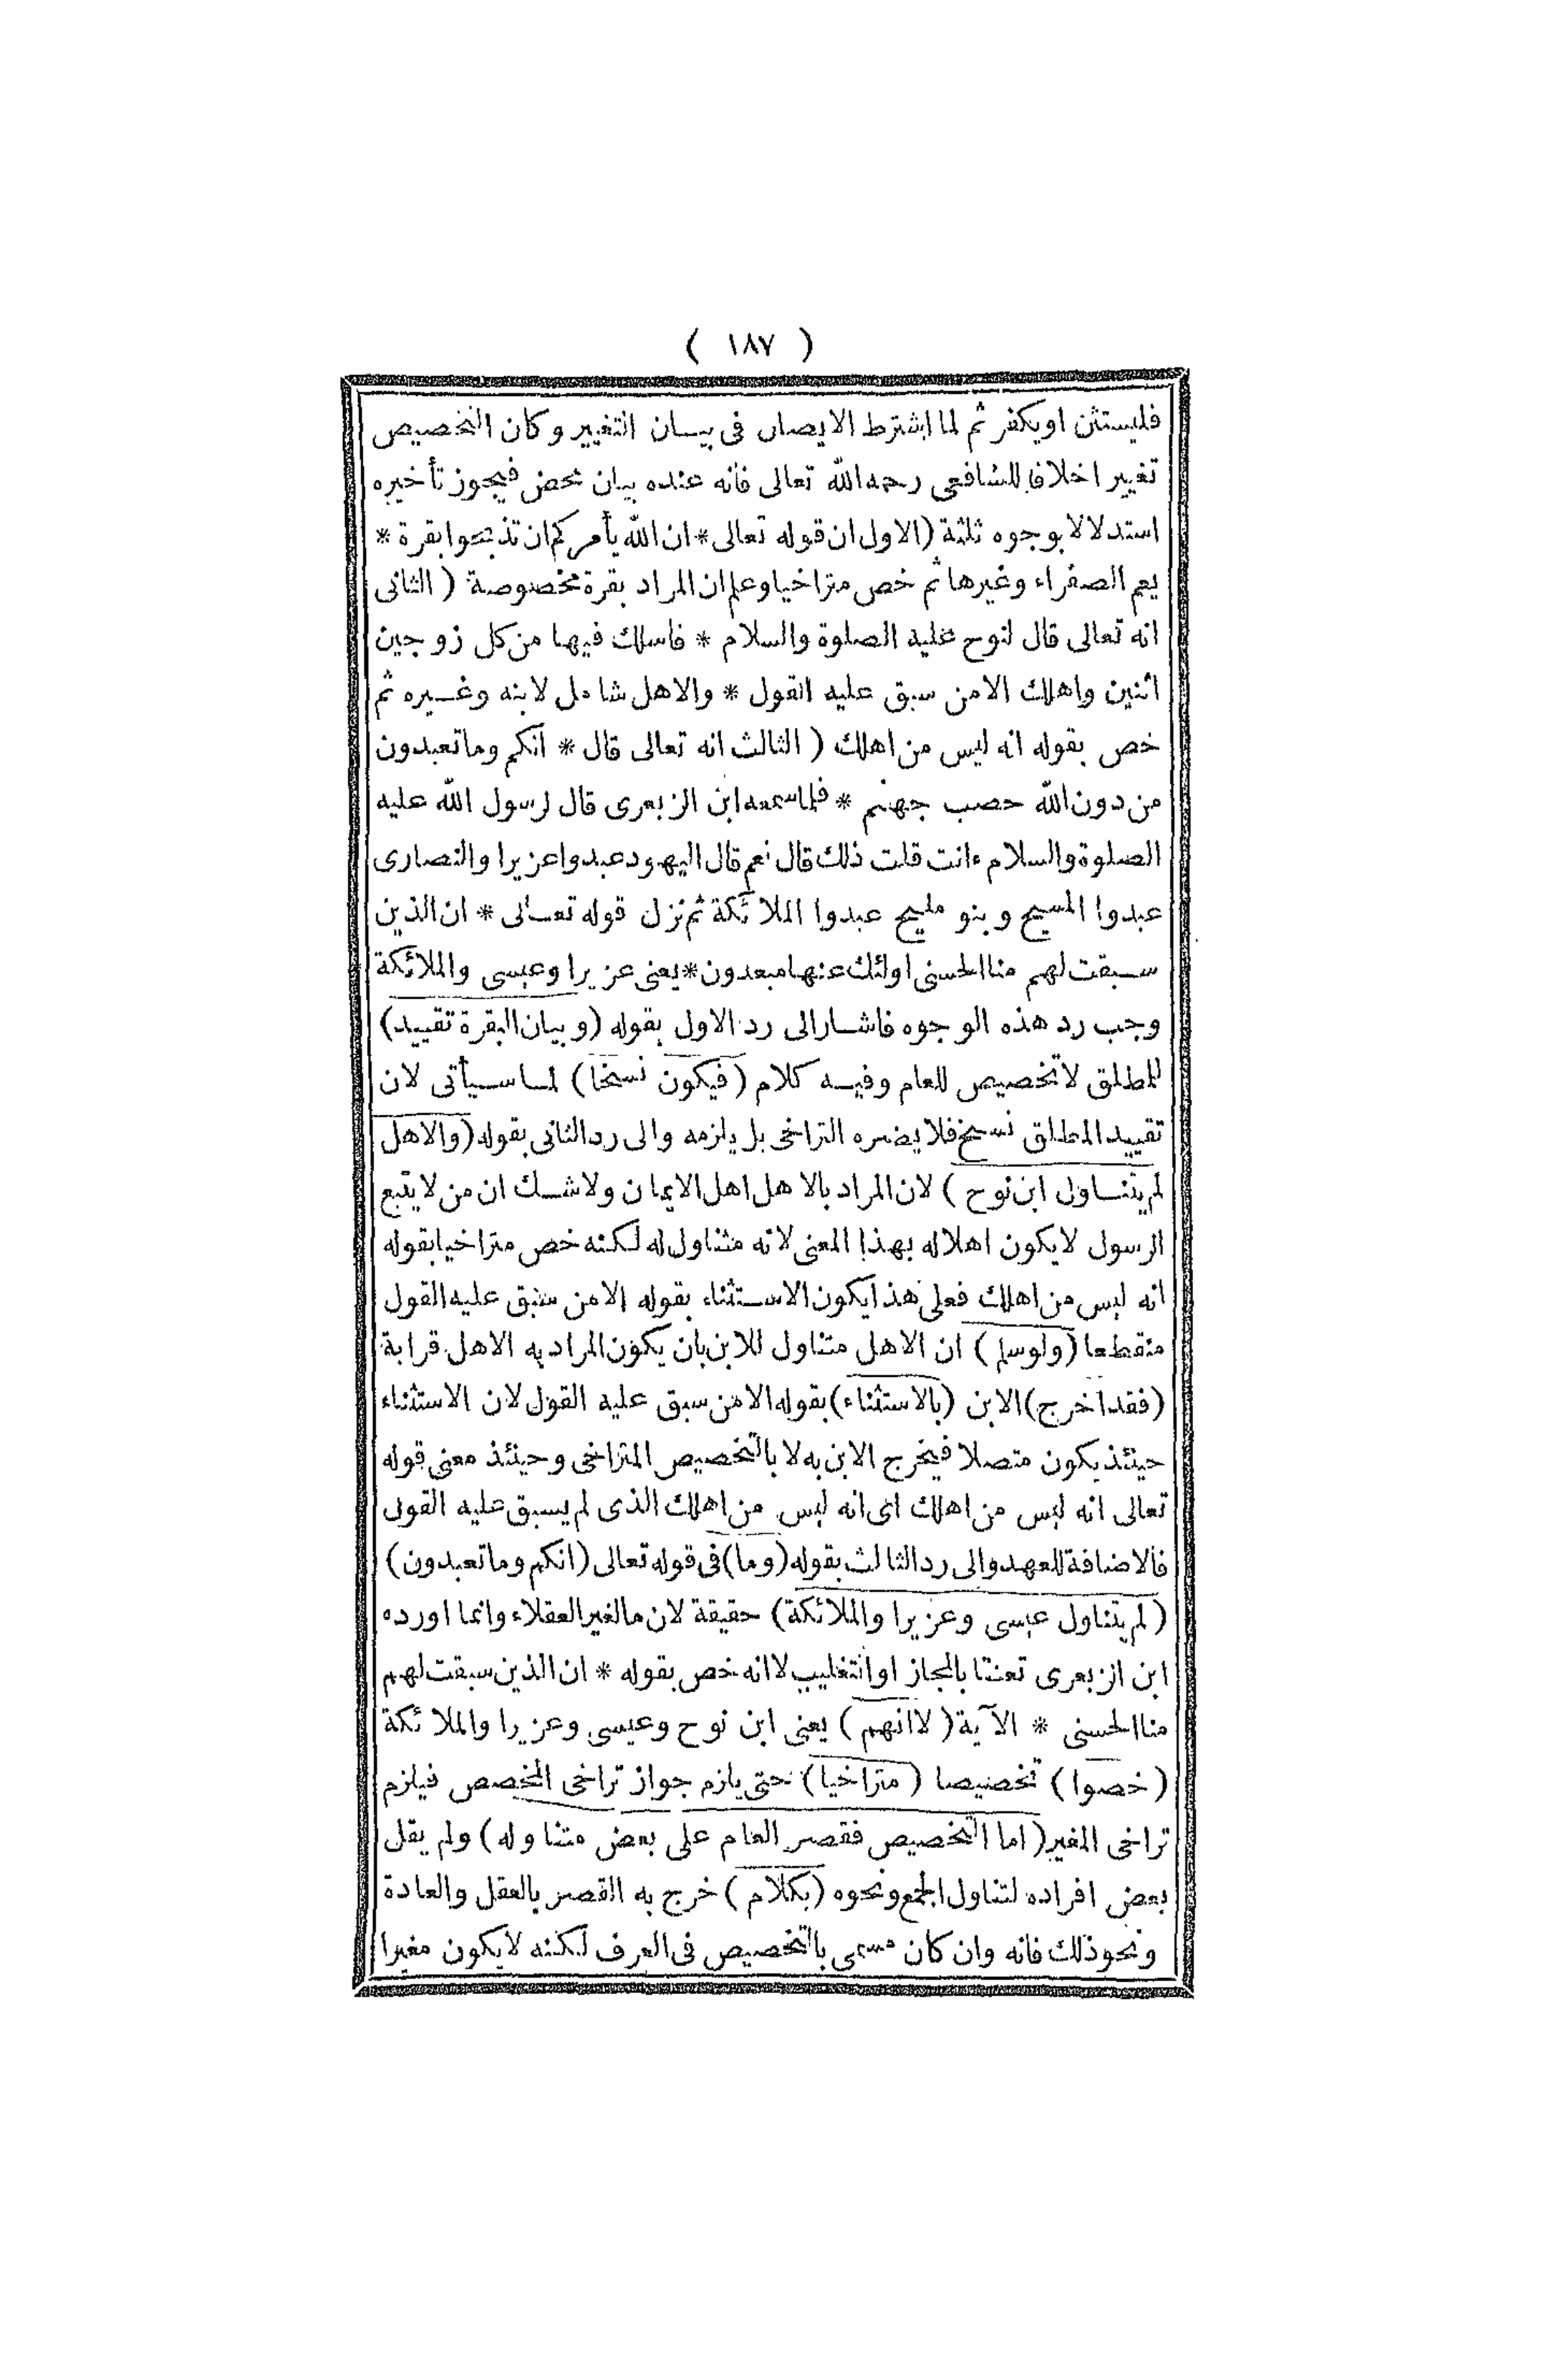 ( ١٨٧ )
فليستثن او يكفر ثم لما اشترط الايصال فى بيــان التغيير وكان التخصيص
تغييرا خلافا للشافعى رحمه الله تعالى فانه عنده بيان محض فيجوز تأخيره
استدلالا بوجوه ثلثة (الاول ان قوله تعالى * ان الله يأمركم ان تذبحوا بقرة *
يعم الصفراء وغيرها ثم خص متراخيا وعلم ان المراد بقرة مخصوصة ( الثانى
انه تعالى قال لنوح عليه الصلوة والسلام * فاسلك فيها من كل زوجين
اثنين واهلك الا من سبق عليه القول * والاهل شامل لابنه وغــيره ثم
خص بقوله انه ليس من اهلك ( الثالث انه تعالى قال * انكم وما تعبدون
من دون الله حصب جهنم * فلما سمعه ابن الزبعرى قال لرسول الله عليه
الصلوة والسلام ءانت قلت ذلك قال نعم قال اليهود عبدوا عزيرا والنصارى
عبدوا المسيح وبنو مليح عبدوا الملائكة ثم نزل قوله تعــالى * ان الذين
ســبقت لهم منا الحسنى اولئك عنها مبعدون * يعنى عزيرا وعيسى والملائكة
وجب رد هذه الوجوه فاشــار الى رد الاول بقوله (وبيان البقرة تقييد)
للمطلق لا تخصيص للعام وفيــه كلام (فيكون نسخا) لمــا ســيأتى لان
تقييد المطلق نسخ فلا يضره التراخى بل يلزمه والى رد الثانى بقوله (والاهل
لم يتنــاول ابن نوح ) لان المراد بالاهل اهل الايمان ولا شــك ان من لا يتبع
الرسول لا يكون اهلا له بهذا المعنى لا نه متناول له لكنه خص متراخيا بقوله
انه ليس من اهلك فعلى هذا يكون الاســتثناء بقوله الا من سبق عليه القول
منقطعا (ولو سلم ) ان الاهل متناول للابن بأن يكون المراد به الاهل قرابة
(فقد اخرج) الابن (بالاستثناء) بقوله الا من سبق عليه القول لان الاستثناء
حينئذ يكون متصلا فيخرج الابن به لا بالتخصيص المتراخى وحينئذ معنى قوله
تعالى انه ليس من اهلك اى انه ليس من اهلك الذى لم يسبق عليه القول
فالاضافة للعهد والى رد الثالث بقوله (وما) فى قوله تعالى (انكم وما تعبدون)
(لم يتناول عيسى وعزيرا والملائكة) حقيقة لان ما لغير العقلاء وانما اورده
ابن الزبعرى تعنتا بالمجاز او التغليب لا انه خص بقوله * ان الذين سبقت لهم
منا الحسنى * الآية (لا انهم ) يعنى ابن نوح وعيسى وعزيرا والملائكة
(خصوا ) تخصيصا ( متراخيا) حتى يلزم جواز تراخى المخصص فيلزم
تراخى المغير (اما التخصيص فقصر العام على بعض متناوله) ولم يقل
بعض افراده لتناول الجمع ونحوه (بكلام ) خرج به القصر بالعقل والعادة
ونحو ذلك فانه وان كان مسمى بالتخصيص فى العرف لكنه لا يكون مغيرا